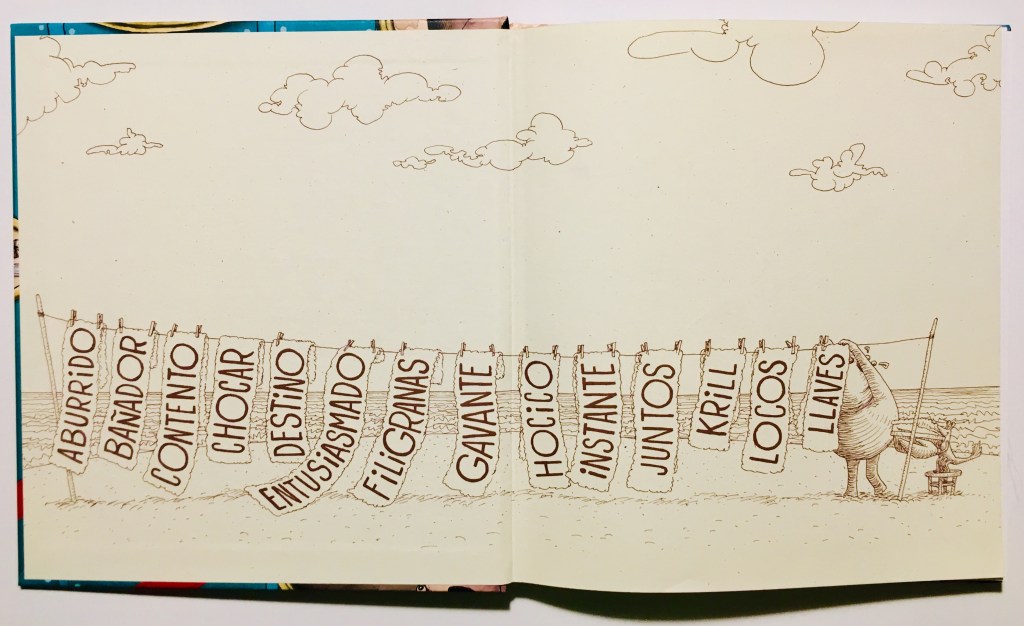 ABURRIDO
BAÑADOR
CONTENTO
CHOCAR
DESTINO
ENTUSIASMADO
FILIGRANAS
GAVANTE
HOCICO
INSTANTE
JUNTOS
KRILL
LOCOS
LLAVES